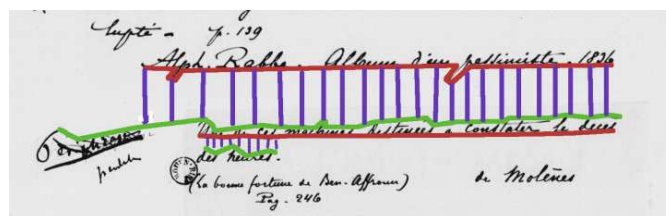 lupté - p. 139
Alph. Rabbe. Album d'un pessimiste. 1836
de ces machines destinées à constater le décès
des heures.
(La bonne fortune de Ben-Affroun)
de Molènes
Pag. 246